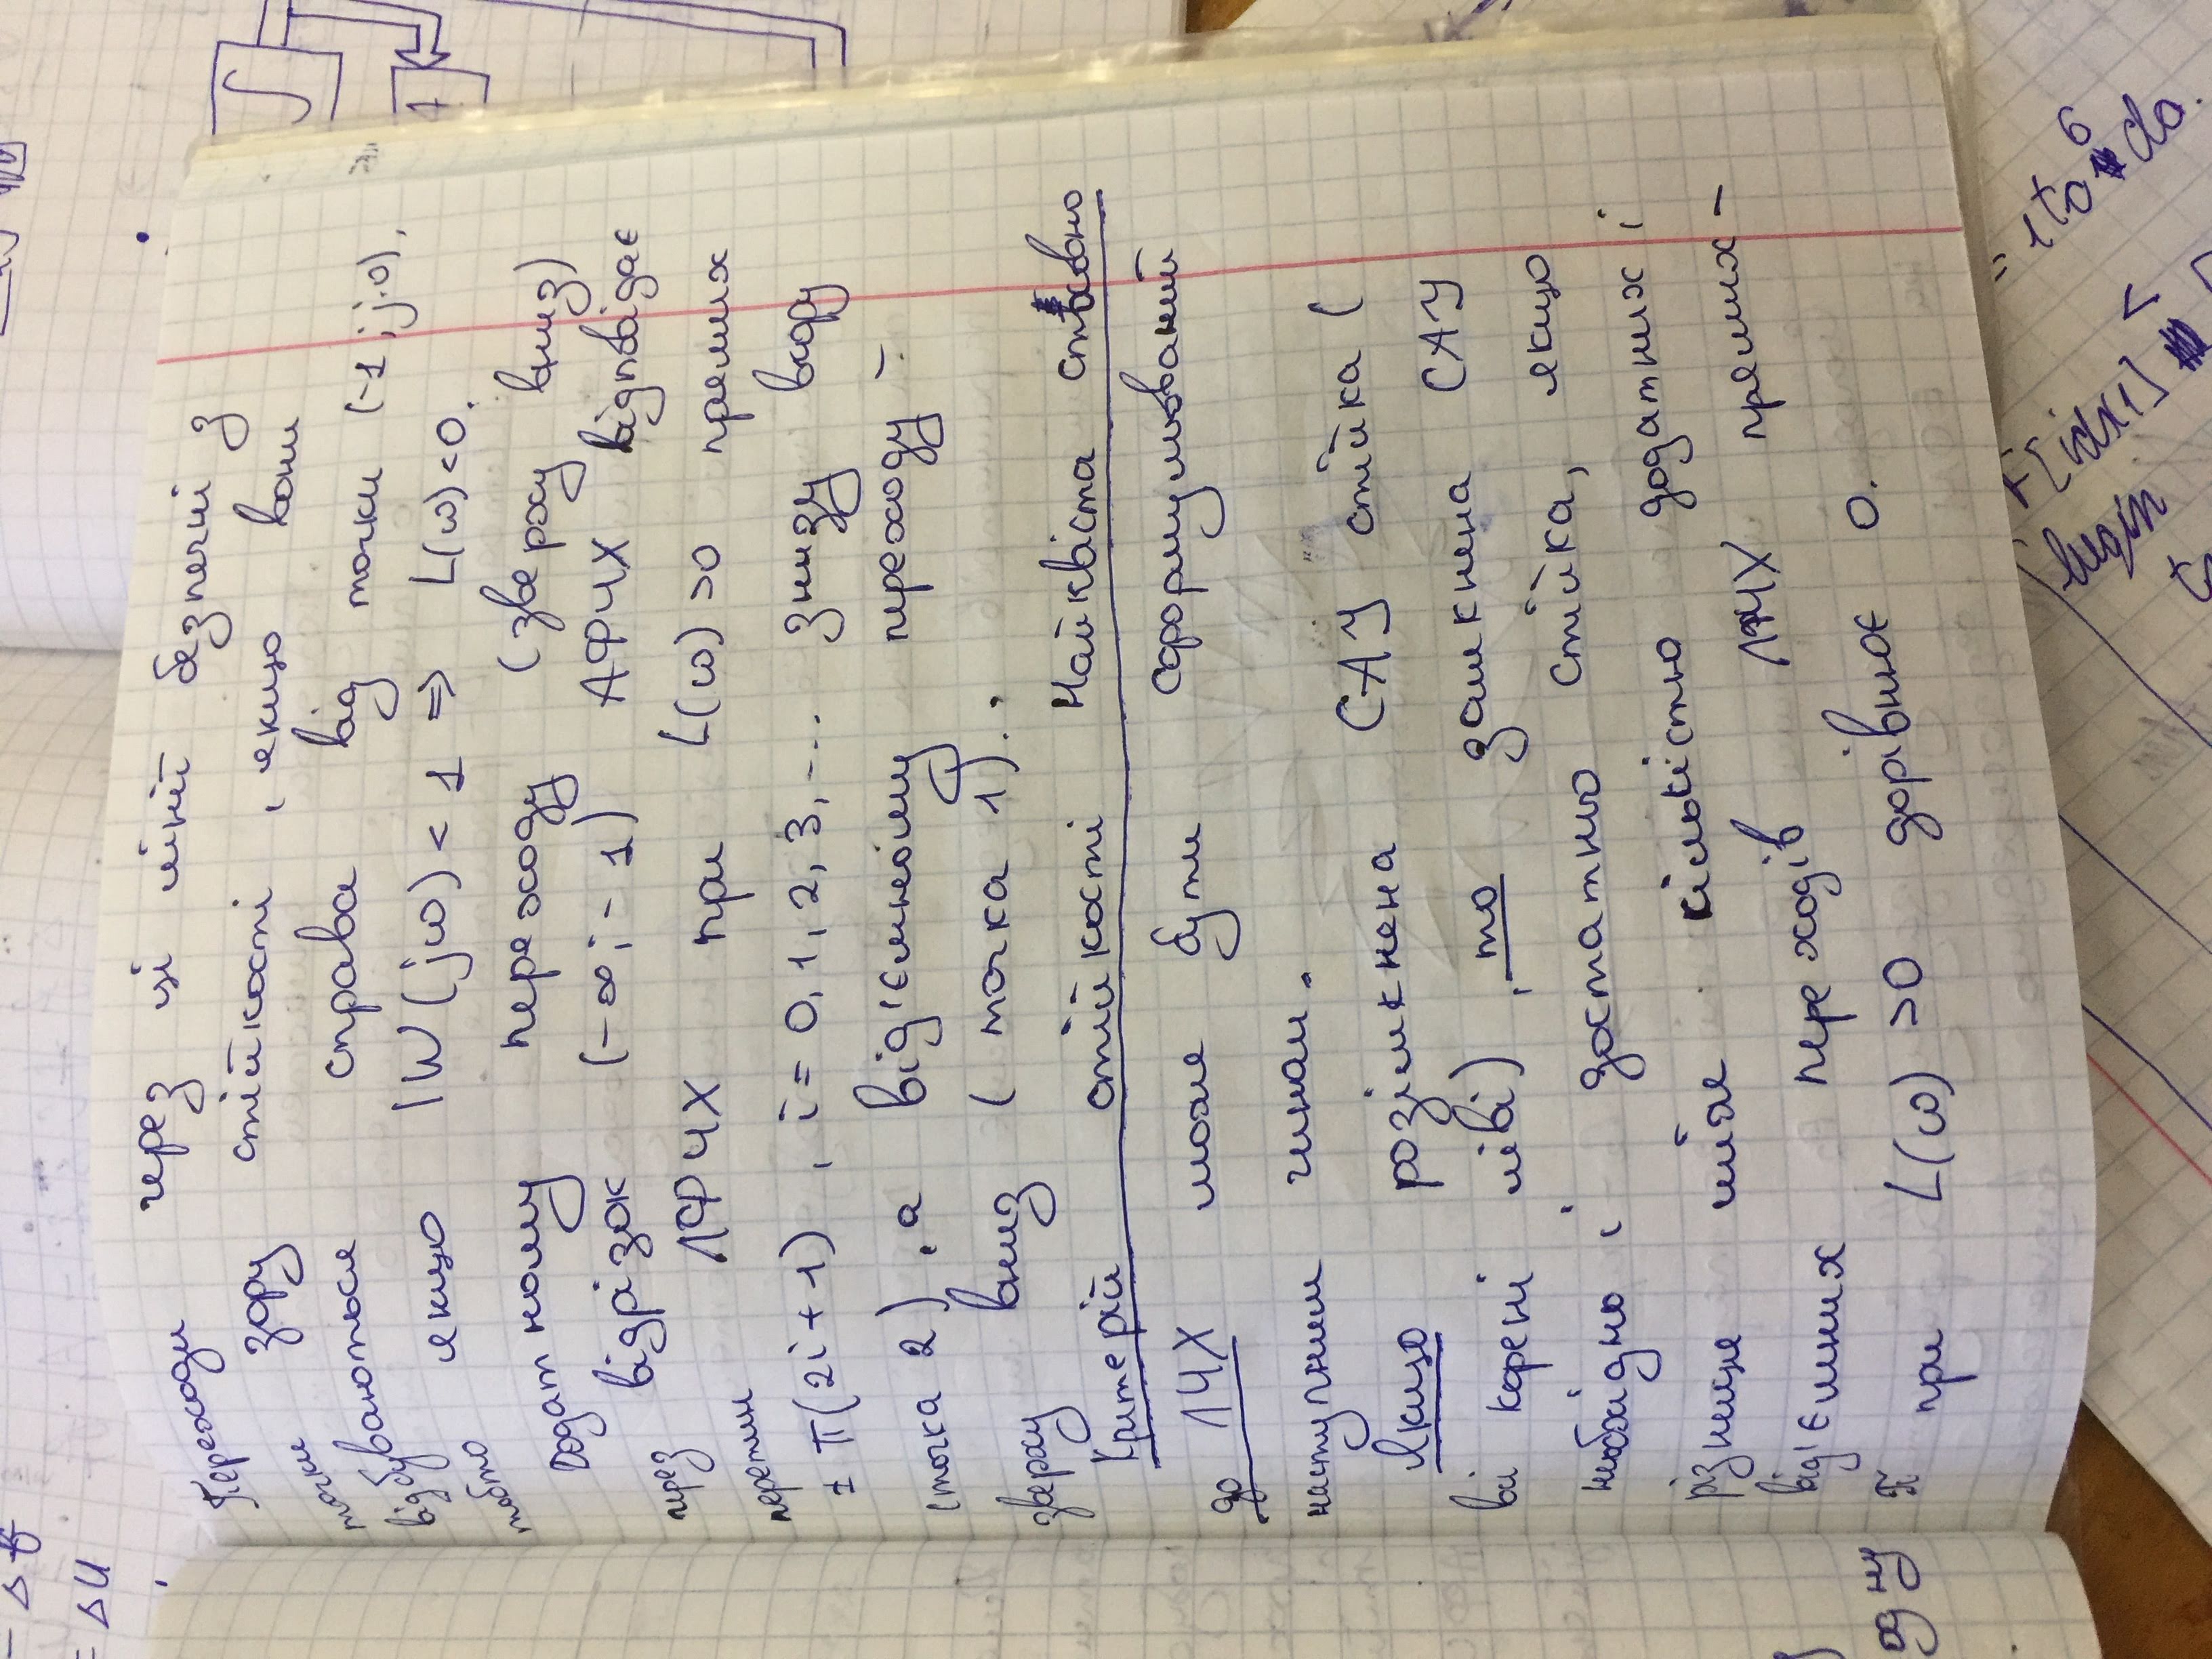 - Δf
= ΔU
Переходи через ці лінії безпечні з
точки зору стійкості, якщо вони
відбуваються справа від точки (-1; j·0),
тобто якщо |W(jω) < 1 ⇒ L(ω)<0.
Додатному переходу (зверху вниз)
через відрізок (-∞; -1) АФЧХ відповідає
перетин ЛФЧХ при L(ω) >0 прямих
± π(2i+1), i = 0, 1, 2, 3, ... знизу вгору
(точка 2), а від'ємному переходу -
зверху вниз (точка 1).
Критерій стійкості Найквіста стосовно
до ЛЧХ може бути сформульований
наступним чином.
Якщо розімкнена САУ стійка (
всі корені ліві), то замкнена САУ
необхідно і достатньо стійка, якщо
різниця між кількістю додатних і
від'ємних переходів ЛФЧХ прямих -
π при L(ω) >0 дорівнює 0.
одну
∫
1
[idx]
begin
<
1 to 6 do